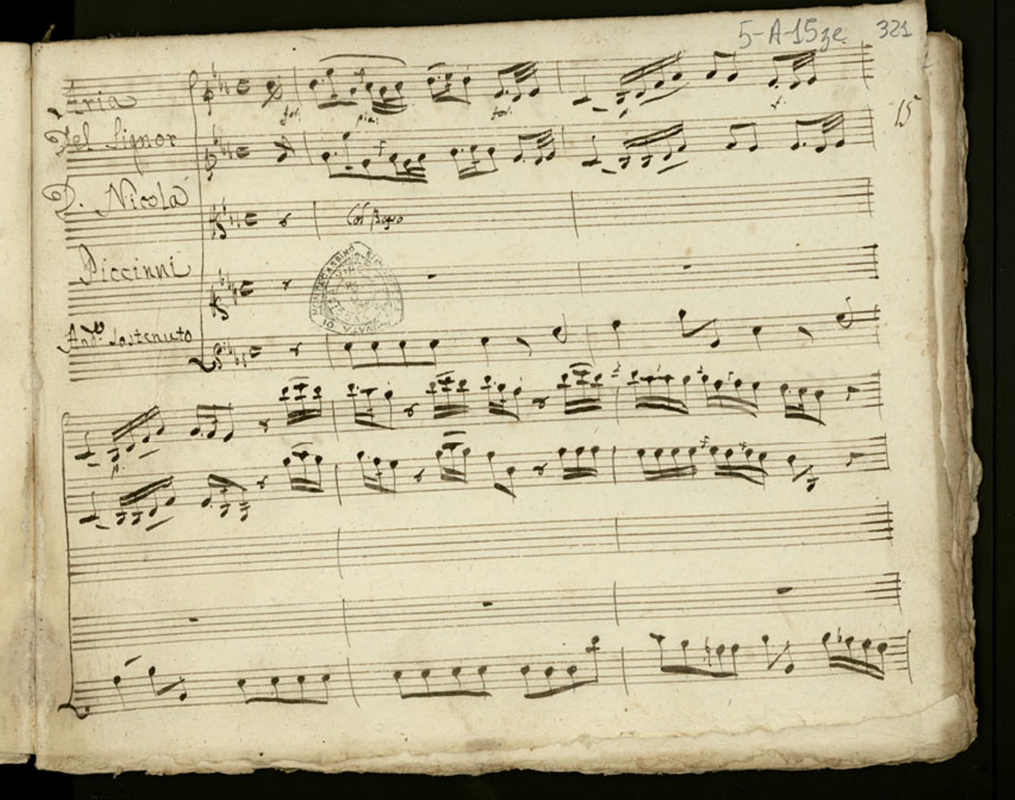 5-A-15ze 321
15
Aria
Del Signor
D. Nicola
Piccinni
And.e Sostenuto
for:
pia:
for:
f.
Col Basso
p.